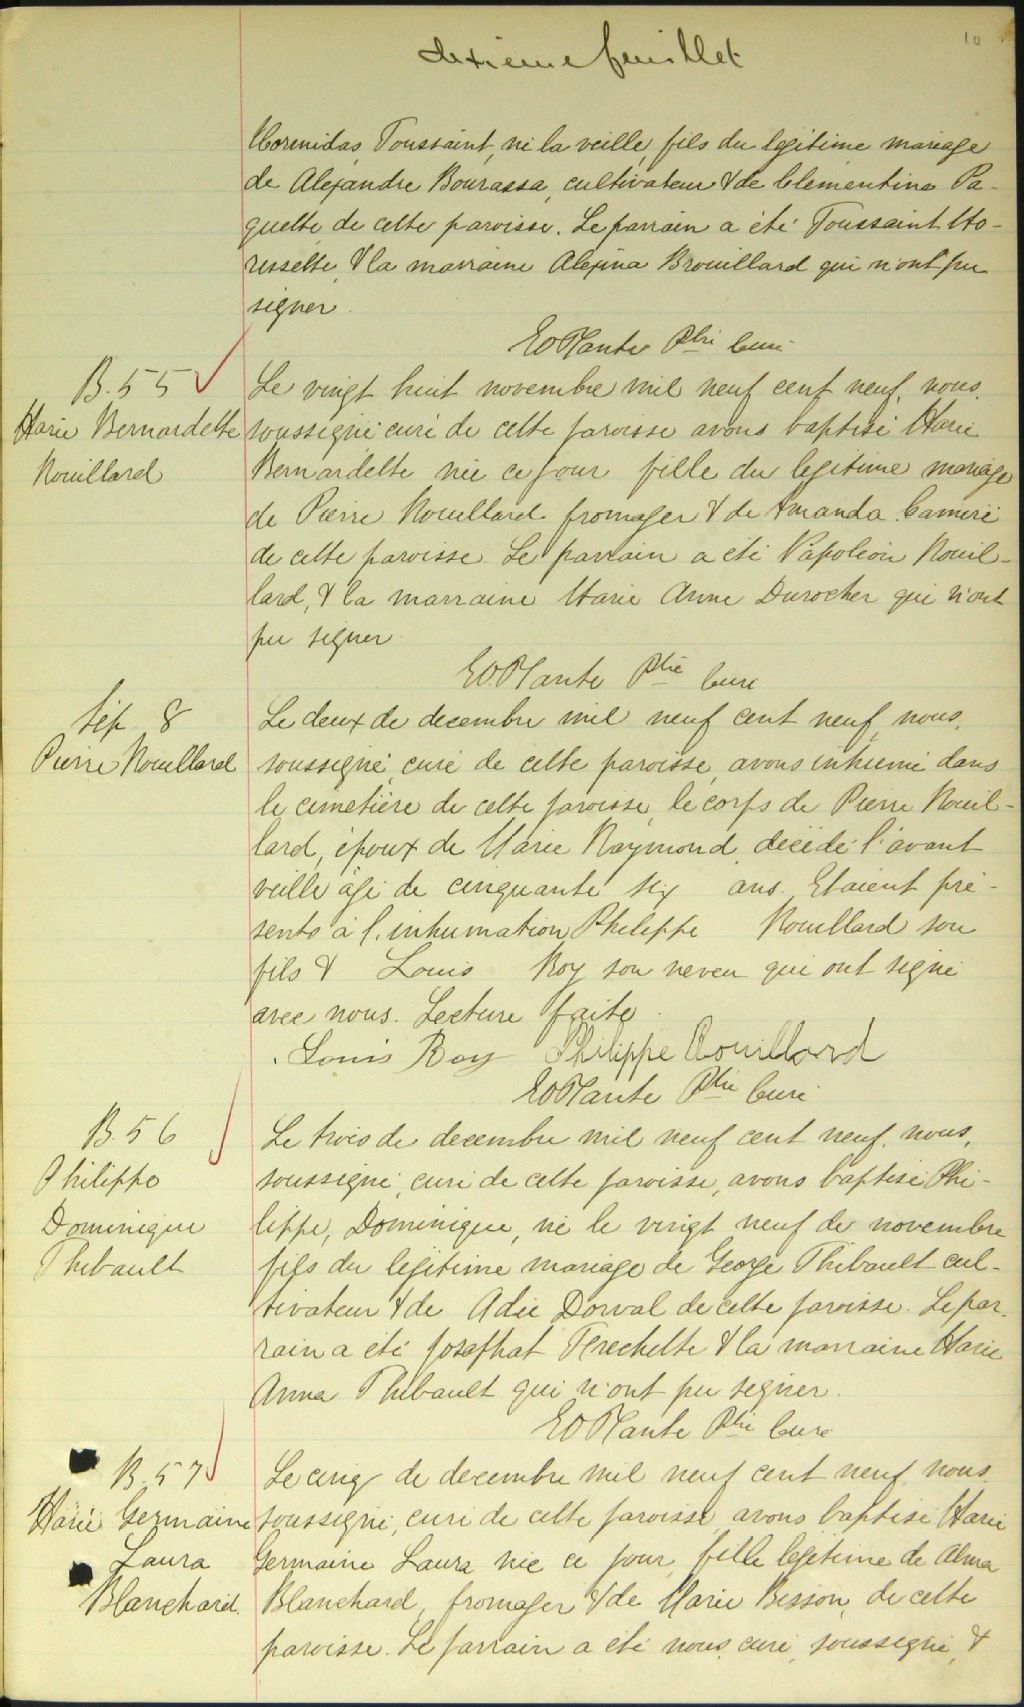 dixieme feuillet
10
Hormidas, Toussaint, né la veille, fils du legitime mariage
de Alexandre Bourassa, cultivateur & de Clementine Pa-
quette, de cette paroisse. Le parrain a été Toussaint Mo-
rissette, & la marraine Alexina Brouillard qui n'ont pu
signer.
EOPlante Ptre Curé
B. 55
Marie Bernardette
Rouillard
Le vingt huit novembre mil neuf cent neuf, nous,
soussigné curé de cette paroisse avons baptisé Marie
Bernardette née ce jour fille du legitime mariage
de Pierre Rouillard fromager & de Amanda Cameré
de cette paroisse Le parrain a été Napoléon Rouil-
lard, & la marraine Marie Anne Durocher qui n'ont
pu signer.
EOPlante Ptre Curé
Sép 8
Pierre Rouillard
Le deux de decembre mil neuf cent neuf, nous,
soussigné, curé de cette paroisse, avons inhumé dans
le cimetière de cette paroisse, le corps de Pierre Rouil-
lard, époux de Marie Raymond, décédé l'avant
veille âgé de cinquante six ans. Etaient pré-
sents à l'inhumation Philippe Rouillard son
fils & Louis Roy son neveu qui ont signé
avec nous. Lecture faite.
Louis Roy Philippe Rouillard
EOPlante Ptre Curé
B. 56
Philippe
Dominique
Thibault
Le trois de decembre mil neuf cent neuf, nous,
soussigné, curé de cette paroisse, avons baptisé Phi-
lippe, Dominique, né le vingt neuf de novembre
fils du légitime mariage de George Thibault cul-
tivateur & de Adée Dorval de cette paroisse. Le par-
rain a été Josaphat Frechette & la marraine Marie
Anna Thibault qui n'ont pu signer.
EOPlante Ptre Curé
B. 57
Marie Germaine
Laura
Blanchard.
Le cinq de decembre mil neuf cent neuf, nous,
soussigné, curé de cette paroisse, avons baptisé Marie
Germaine Laura née ce jour, fille légitime de Alma
Blanchard, fromager & de Marie Besson, de cette
paroisse. Le parrain a été nous, curé, soussigné, &